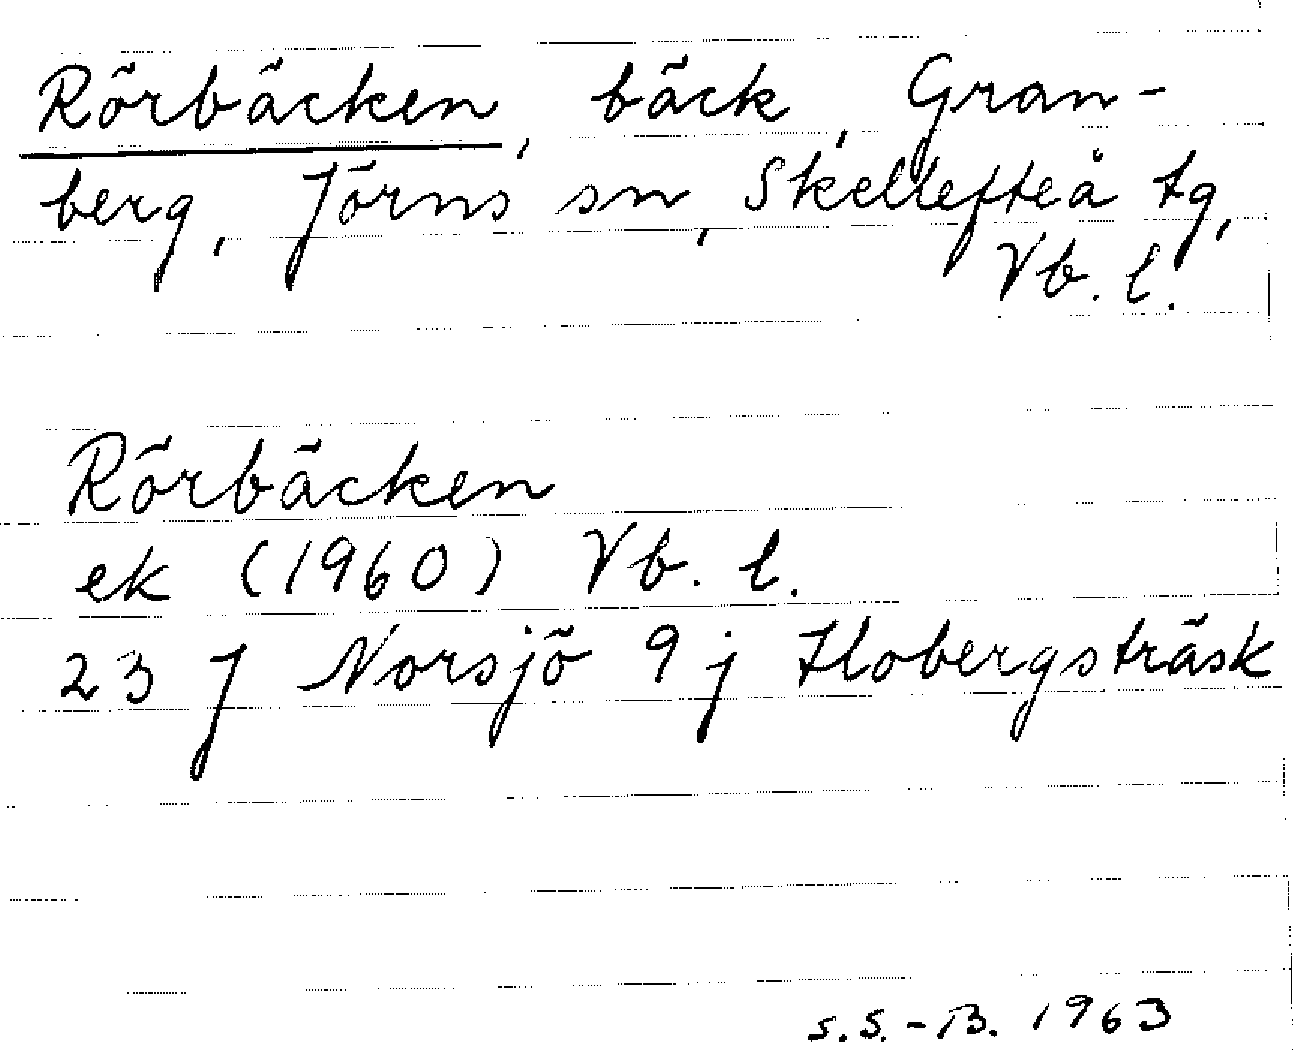 Rörbäcken, bäck, Gran-
berg, Jörns sn, Skellefteå tg,
Vb. l.
Rörbäcken
ek (1960) Vb. l.
23 J Norsjö 9 j Hobergsträsk
S.S.-B. 1963